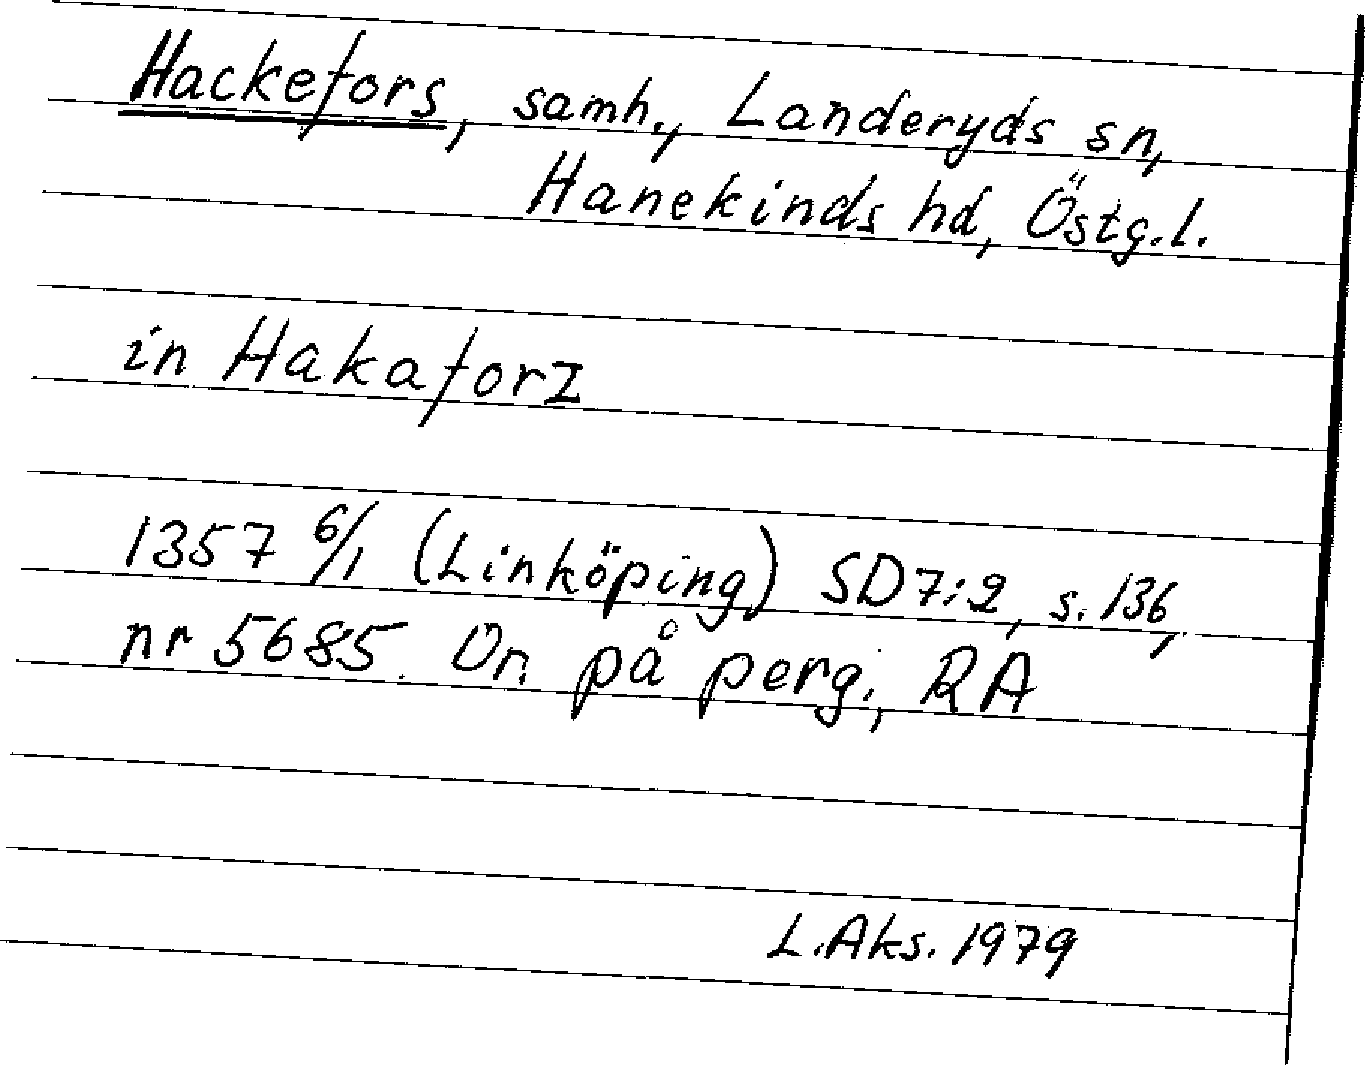 Hackefors, samh., Landeryds sn,
Hanekinds hd, Östg.l.
in Hakaforz
1357 6/1 (Linköping) SD 7:2, s. 136,
nr 5685. Or. på perg., RA
L.Aks. 1979